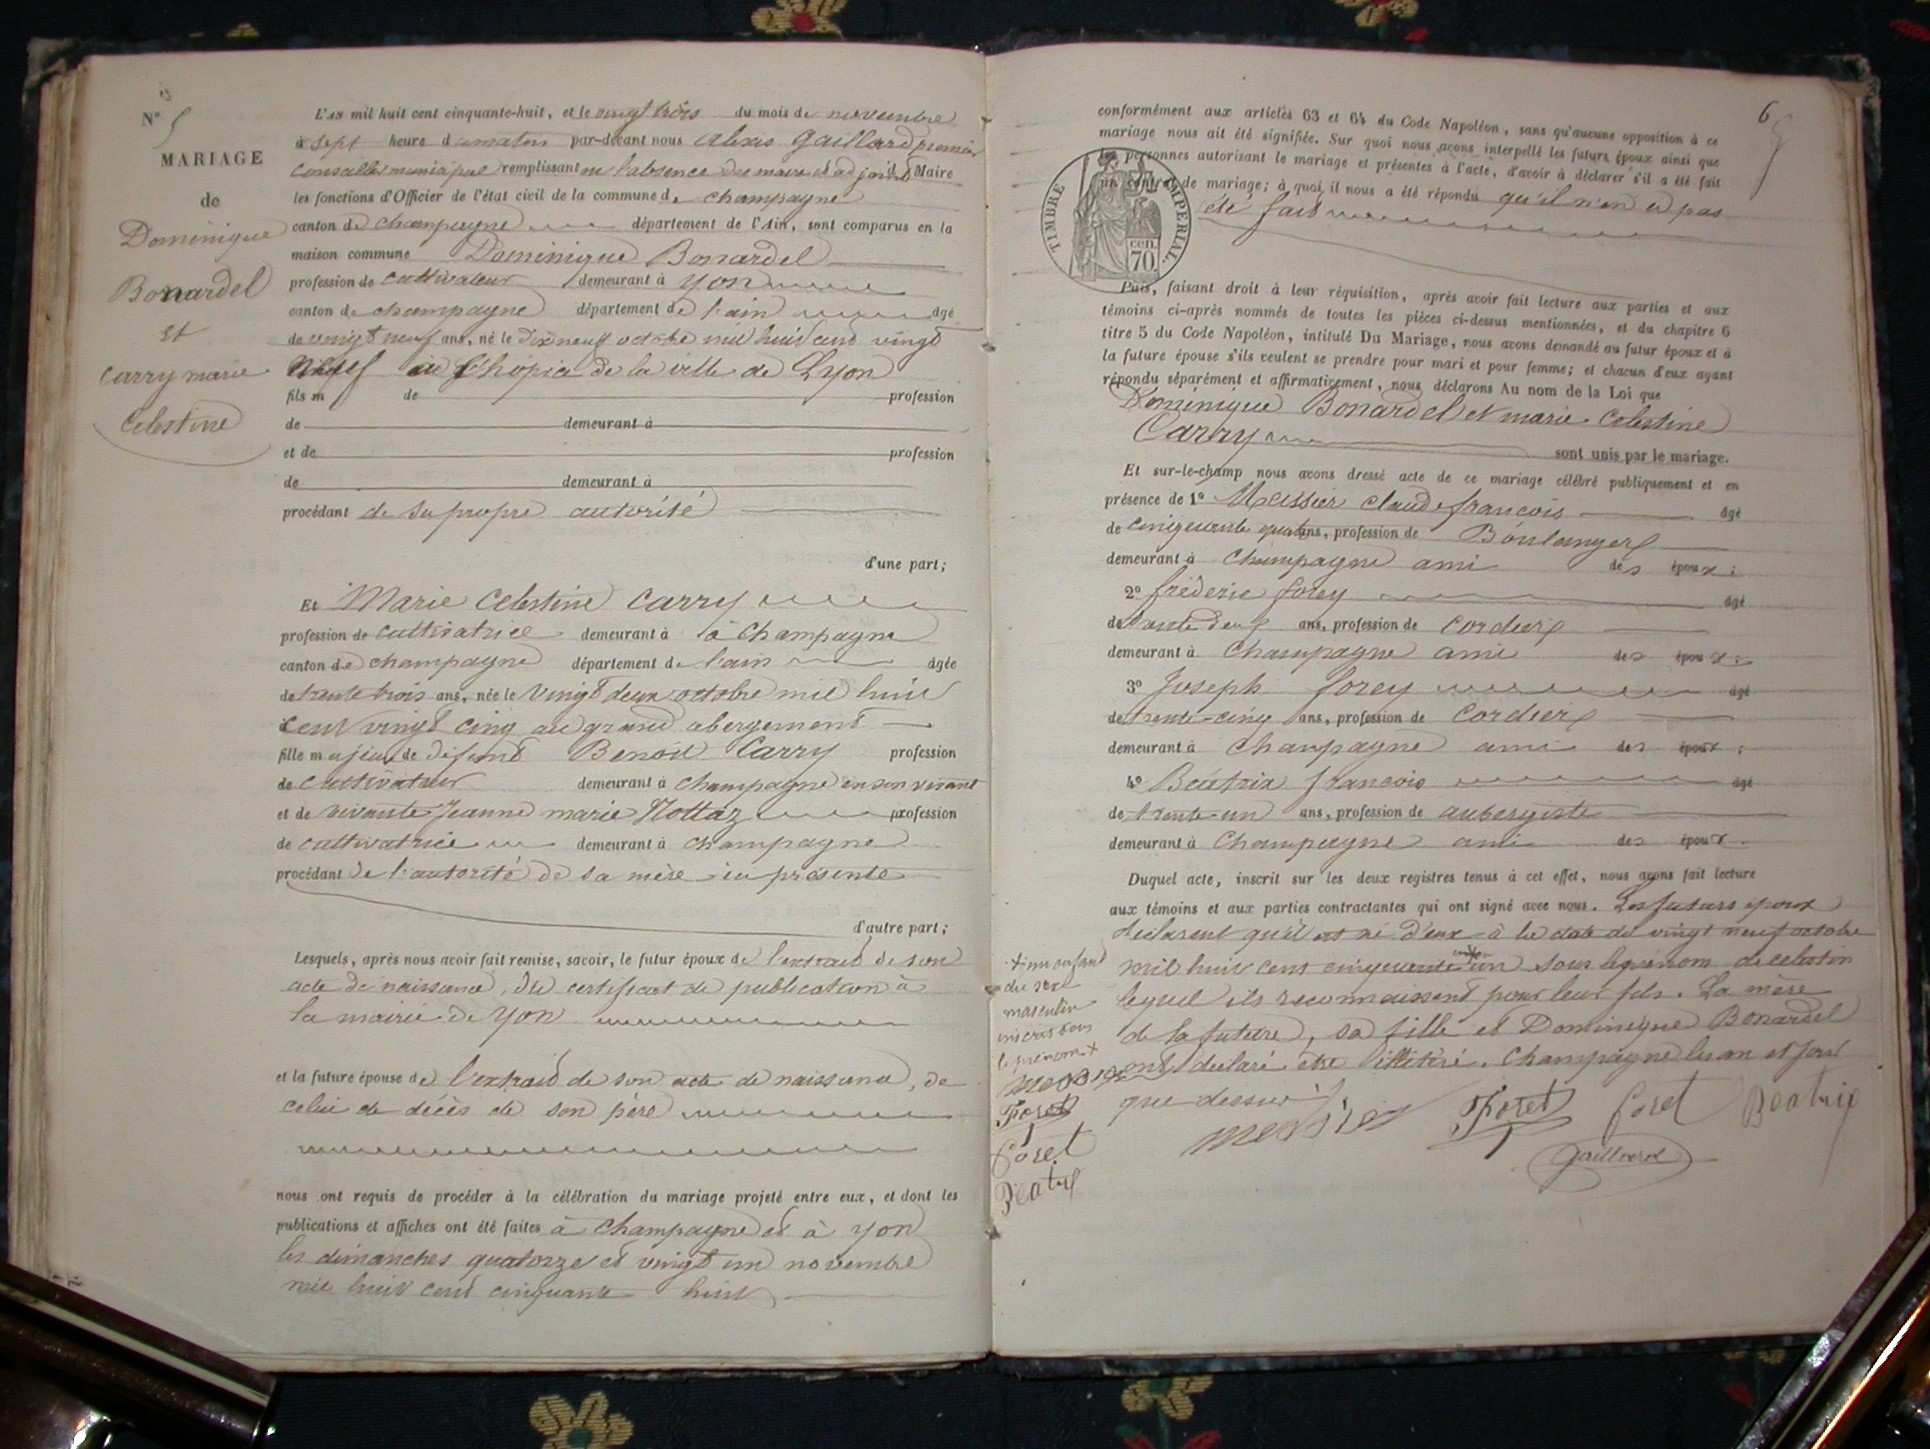 N° 5
MARIAGE
de
Dominique
Bonardel
et
Carry marie
Celestine
L'AN mil huit cent cinquante-huit, et le vingt trois du mois de novembre
à sept heure du matin par-devant nous alexis Gaillard premier
Conseiller municipal remplissant en l'absence du maire et adjoint Maire
les fonctions d'Officier de l'état civil de la commune de champagne
canton de champagne département de l'Ain, sont comparus en la
maison commune Dominique Bonardel
profession de cultivateur demeurant à yon
canton de champagne département de l'ain âgé
de vingt neuf ans, né le Dix neuf octobre mil huit cent vingt
neuf à l'hopice de la ville de Lyon
fils m de profession
de demeurant à
et de profession
de demeurant à
procédant de sa propre autorité
d'une part;
Et Marie Celestine Carry
profession de cultivatrice demeurant à à champagne
canton de champagne département de l'ain âgée
de trente trois ans, née le vingt deux octobre mil huit
cent vingt cinq au grand abergement
fille majeure de défunt Benoit Carry profession
de cultivateur demeurant à champagne en son vivant
et de vivante Jeanne marie Nottaz profession
de cultivatrice demeurant à champagne
procédant de l'autorité de sa mère ici présente
d'autre part;
Lesquels, après nous avoir fait remise, savoir, le futur époux de l'extrait de son
acte de naissance, du certificat de publication à
la mairie de yon
et la future épouse de l'extrait de son acte de naissance, de
celui de décès de son père
nous ont requis de procéder à la célébration du mariage projeté entre eux, et dont les
publications et affiches ont été faites à champagne et à yon
les dimanches quatorze et vingt un novembre
mil huit cent cinquante huit
6
conformément aux articles 63 et 64 du Code Napoléon, sans qu'aucune opposition à ce
mariage nous ait été signifiée. Sur quoi nous avons interpellé les futurs époux ainsi que
les personnes autorisant le mariage et présentes à l'acte, d'avoir à déclarer s'il a été fait
un contrat de mariage; à quoi il nous a été répondu qu'il n'en a pas
été fait
TIMBRE IMPERIAL.
cen.
70
Puis, faisant droit à leur réquisition, après avoir fait lecture aux parties et aux
témoins ci-après nommés de toutes les pièces ci-dessus mentionnées, et du chapitre 6
titre 5 du Code Napoléon, intitulé Du Mariage, nous avons demandé au futur époux et à
la future épouse s'ils veulent se prendre pour mari et pour femme; et chacun d'eux ayant
répondu séparément et affirmativement, nous déclarons Au nom de la Loi que
Dominique Bonardel et marie Celestine
Carry
sont unis par le mariage.
Et sur-le-champ nous avons dressé acte de ce mariage célébré publiquement et en
présence de 1° Messier claude francois âgé
de cinquante quatre ans, profession de Boulanger
demeurant à champagne ami des époux;
2° fréderic forey âgé
de trente deux ans, profession de cordier
demeurant à champagne ami des époux;
3° Joseph forey âgé
de trente-cinq ans, profession de cordier
demeurant à champagne ami des époux;
4° Béatrix francois âgé
de trente-un ans, profession de aubergiste
demeurant à champagne ami des époux.
Duquel acte, inscrit sur les deux registres tenus à cet effet, nous avons fait lecture
aux témoins et aux parties contractantes qui ont signé avec nous. Les futurs epoux
déclarent qu'il est né d'eux à la date du vingt neuf octobre
mil huit cent cinquante un sous le prenom de celestin
lequel ils reconnaissent pour leur fils. La mère
de la future, sa fille et Dominique Bonardel
ont déclaré etre illitéré. Champagne les an et jour
que dessus
x un enfant
du sexe
masculin
inscrit sous
le prenom x
messier
Foret
foret
Beatrix
messier Foret foret Beatrix
Gaillard